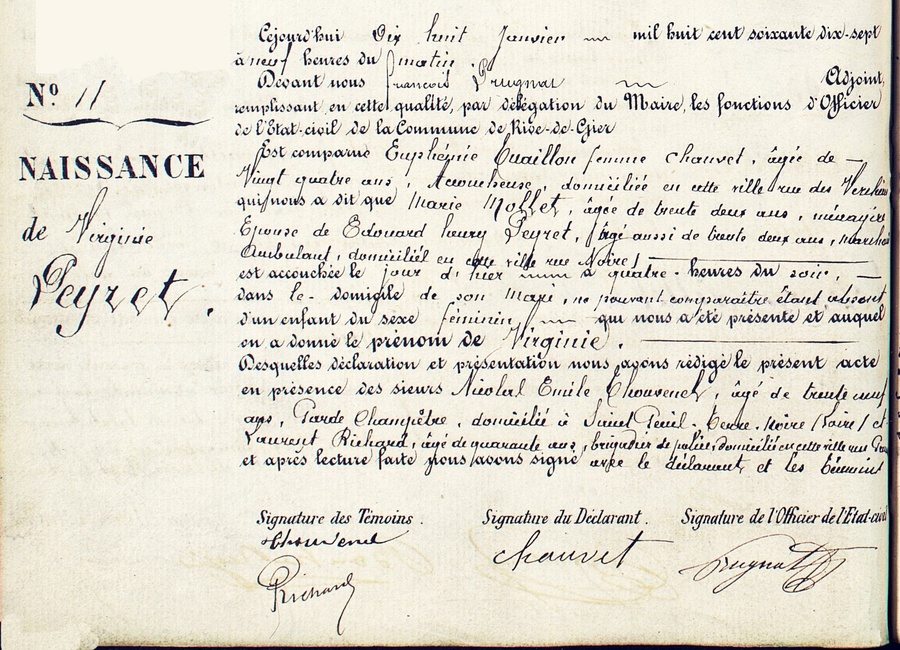 Cejourd'hui Dix huit Janvier mil huit cent soixante dix-sept
à neuf heures du matin
Devant nous François Prugnat Adjoint,
remplissant en cette qualité, par délégation du Maire, les fonctions d'Officier
de l'Etat-civil de la Commune de Rive-de-Gier
Nº 11
NAISSANCE
de Virginie
Peyret.
Est comparue Euphémie Quaillon femme Chauvet, âgée de
Vingt quatre ans, Accoucheuse, domiciliée en cette ville rue des
qui nous a dit que Marie Mollet, âgée de trente deux ans, ménagère
Epouse de Edouard henry Peyret, âgé aussi de trente deux ans, marchand
Ambulant, domicilié en cette ville rue Noire
est accouchée le jour d'hier à quatre heures du soir,
dans le domicile de son Mari, ne pouvant comparaître étant absent
d'un enfant du sexe féminin, qui nous a été présenté et auquel
on a donné le prénom de Virginie.
Desquelles déclaration et présentation nous avons rédigé le présent acte
en présence des sieurs Nicolas Emile Chouvenel, âgé de trente neuf
ans, Garde Champêtre, domicilié à Terre-Noire (Loire) et
Laurent Richard, âgé de quarante ans, brigadier de police, domicilié en cette ville rue
et après lecture faite nous avons signé avec le déclarant et les témoins
Signature des Témoins. Signature du Déclarant. Signature de l'Officier de l'Etat-civil
Chouvenel Chauvet Prugnat
Richard